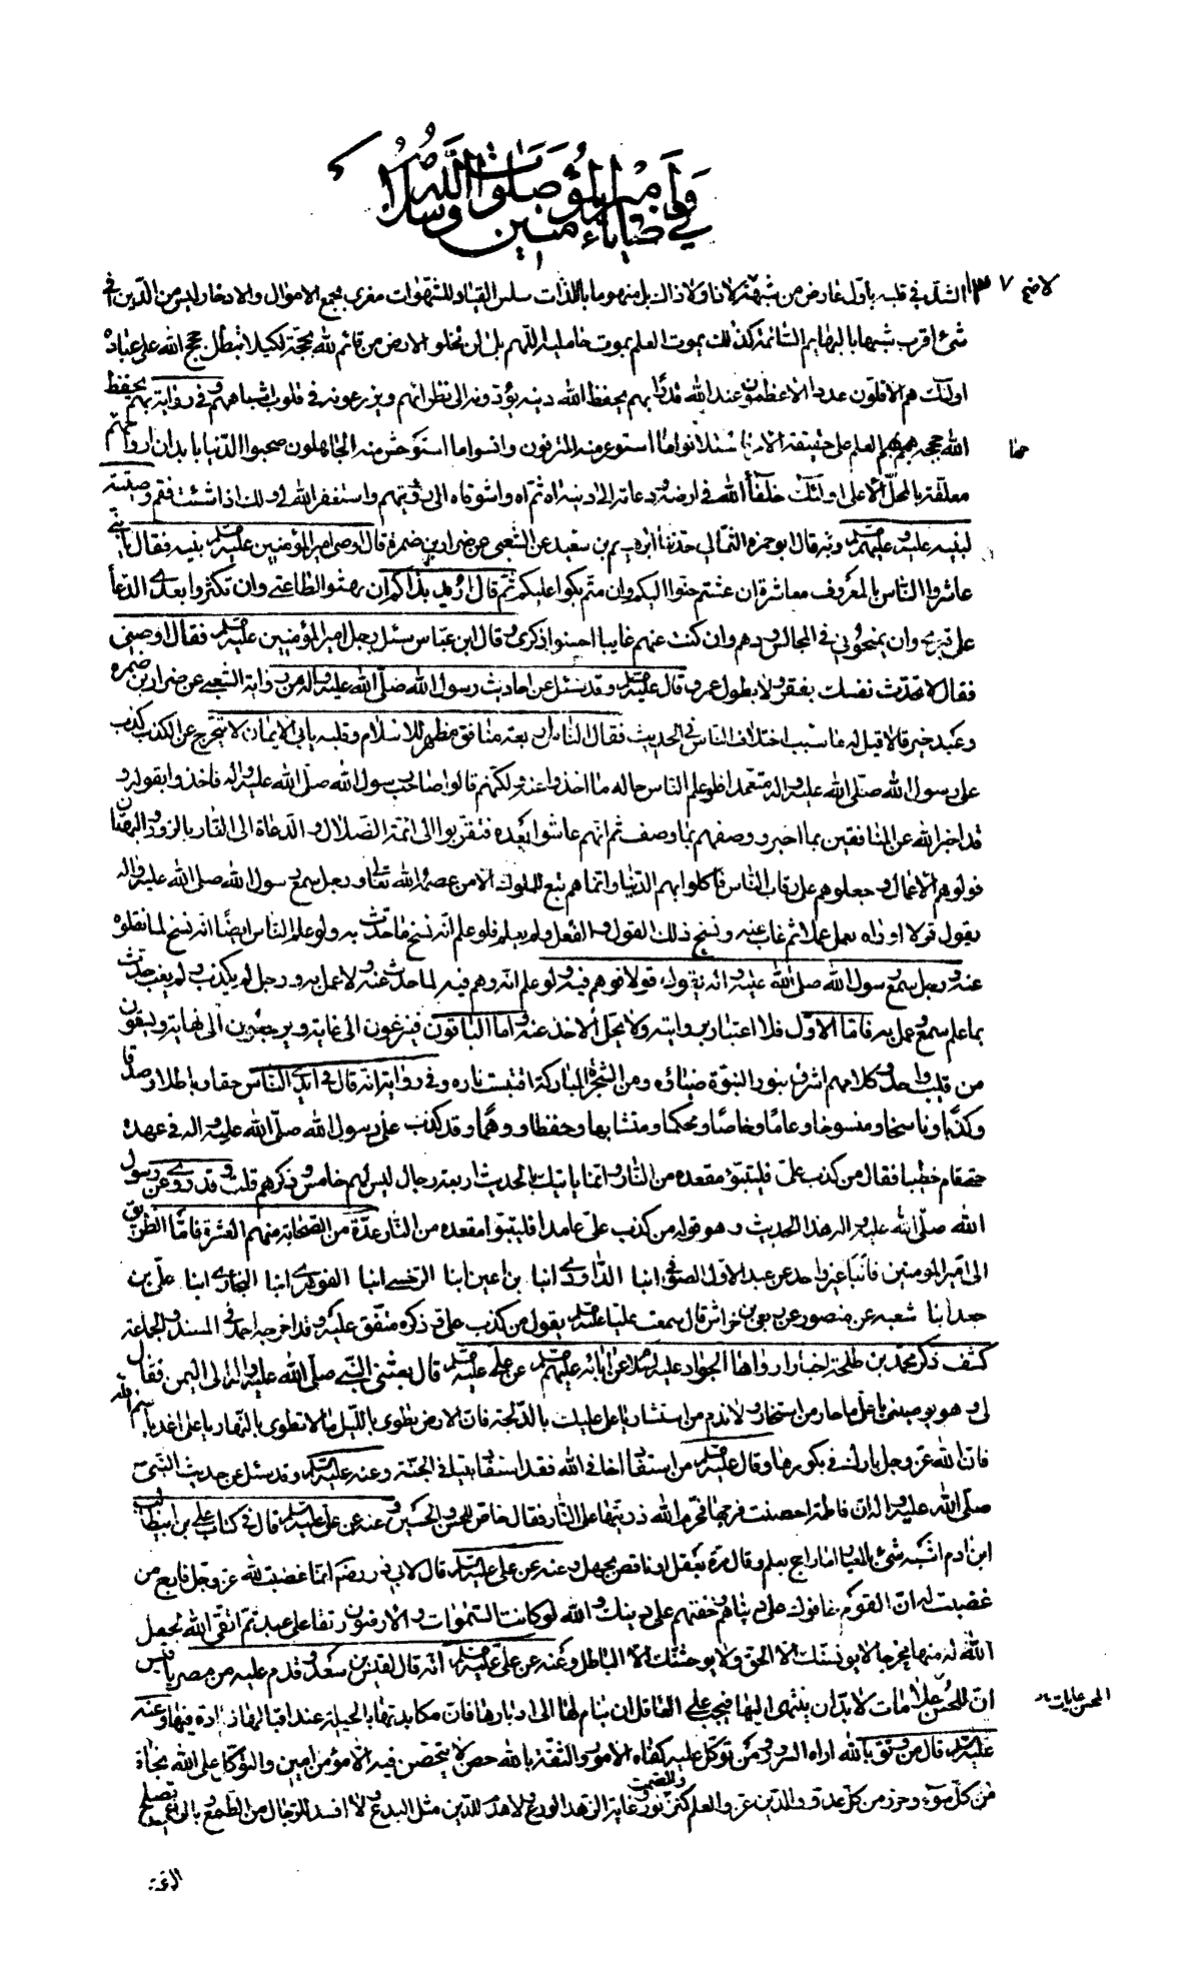 في وصايا أمير المؤمنين صلوات الله وسلامه
١٣٧
الشك في قلبه باول عارض من شبهة الا لا ذا ولا ذاك بل منهوما باللذات سلس القياد للشهوات مغرى بجمع الاموال والادخار ليس من الدين في
شئ اقرب شبها بالبهايم السائمة كذلك يموت العلم بموت حامليه اللهم بلى لن يخلو الارض من قائم لله بحجة لكيلا تبطل حجج الله على عباده
اولئك هم الاقلون عددا الاعظمون عند الله قدرا بهم يحفظ الله دينه يؤدونه الى نظرائهم ويزرعونه في قلوب اشباههم وفي رواية بهم يحفظ
الله حججه هجم بهم العلم على حقيقة الامر فاستلانوا ما استوعر منه المترفون وانسوا بما استوحش منه الجاهلون صحبوا الدنيا بابدان ارواحهم
معلقة بالمحل الاعلى اولئك خلفاء الله في ارضه ودعاته الى دينه اه ثم اه واشوقاه الى رؤيتهم واستغفر الله لي ولك اذا شئت فقم وصيته
لبنيه عليه وعليهم السلام وبه قال ابو حمزة الثمالي حدثنا ابرهيم بن سعيد عن الشعبي عن ضرار بن ضمرة قال اوصى امير المؤمنين عليه السلام بنيه فقال يا بني
عاشروا الناس بالمعروف معاشرة ان عشتم حنوا اليكم وان متم بكوا عليكم ثم قال اريد بذاكم ان يهشوا لطاعتي وان تكثروا بعدي الدعا
على قبري وان يمنحوني في المجالس ودهم وان كنت عنهم غايبا احسنوا ذكري وقال ابن عباس سئل رجل امير المؤمنين عليه السلام فقال اوصني
فقال لا تحدث نفسك بفقر ولا بطول عمر وقال عليه السلام وقد سئل عن احاديث رسول الله صلى الله عليه واله من رواية الشعبي عن ضرار بن ضمرة
وعبد خير قالا قيل له ما سبب اختلاف الناس في الحديث فقال الناس اربعة منافق مظهر للاسلام وقلبه يابى الايمان لا يتحرج عن الكذب كذب
على رسول الله صلى الله عليه واله متعمدا فلو علم الناس حاله ما اخذوا عنه ولكنهم قالوا صاحب رسول الله صلى الله عليه واله فاخذوا بقوله و
قد اخبر الله عن المنافقين بما اخبر ووصفهم بما وصف ثم انهم عاشوا بعده فتقربوا الى ائمة الضلال والدعاة الى النار بالزور والبهتان
فولوهم الاعمال وجعلوهم على رقاب الناس فاكلوا بهم الدنيا وانما هم تبع للملوك الا من عصمه الله تعالى ورجل سمع رسول الله صلى الله عليه واله
يقول قولا او راه يعمل عملا ثم غاب عنه ونسخ ذلك القول والفعل ولم يعلم فلو علم انه نسخ ما حدث به ولو علم الناس ايضا انه نسخ لما نقلوه
عنه ورجل سمع رسول الله صلى الله عليه واله يقول قولا فوهم فيه ولو علم انه وهم فيه لما حدث عنه ولا عمل به ورجل لم يكذب ولم يغب حدث
بما علم سمع وعمل به فاما الاول فلا اعتبار بروايته ولا يحل الاخذ عنه واما الباقون فينزعون الى غاية ويرجعون الى نهاية ويسقون
من قليب واحد وكلامهم اشرق بنور النبوة ضياؤه ومن الشجرة المباركة اقتبست ناره وفي رواية انه قال في ايدي الناس حقا وباطلا وصدقا
وكذبا وناسخا ومنسوخا وعاما وخاصا ومحكما ومتشابها وحفظا ووهما وقد كذب على رسول الله صلى الله عليه واله في عهده
حتى قام خطيبا فقال من كذب علي فليتبوء مقعده من النار وانما ياتيك بالحديث اربعة رجال ليس لهم خامس وذكرهم قلت وقد روى عن رسول
الله صلى الله عليه واله هذا الحديث وهو قوله من كذب علي عامدا فليتبوأ مقعده من النار عدة من الصحابة منهم العشرة فاما الطريق
الى امير المؤمنين فانبأ غير واحد عن عبد الاول الصوفي انبا الداودي انبا بن اعين انبا السرخسي انبا الفربري انبا البخاري انبا علي بن
جعد انبا شعبه عن منصور عن ربعي بن خراش قال سمعت عليا عليه السلام يقول من كذب علي وذكره متفق عليه وقد اخرجه احمد في المسند والجماعة
كشف ذكر محمد بن طلحة اخبارا رواها الجواد عليه السلام عن ابائه عليهم السلام عن علي عليه السلام قال بعثني النبي صلى الله عليه واله الى اليمن فقال
لي وهو يوصيني يا علي ما حار من استخار ولا ندم من استشار يا علي عليك بالدلجة فان الارض تطوى بالليل ما لا تطوى بالنهار يا علي اغد باسم الله
فان الله عز وجل بارك في بكورها وقال عليه السلام من استفاد اخا في الله فقد استفاد بيتا في الجنة وعنه عليه السلام وقد سئل عن حديث النبي
صلى الله عليه واله ان فاطمة احصنت فرجها فحرم الله ذريتها على النار فقال خاص للحسن والحسين وعنه عن علي عليه السلام قال في كتاب علي بن ابيطالب
ابن ادم اشبه شئ بالمعيار اما راجح بعلم وقال مرة بعقل او ناقص بجهل وعنه عن علي عليه السلام قال لابي ذر رضه انما غضبت لله عز وجل فارج من
غضبت له ان القوم خافوك على دنياهم وخفتهم على دينك والله لو كانت السموات والارضون رتقا على عبد ثم اتقى الله لجعل
الله له منها مخرجا لا يونسنك الا الحق ولا يوحشنك الا الباطل وعنه عن علي عليه السلام انه قال لقيس بن سعد وقد قدم عليه من مصر يا قيس
ان للمحن علامات لا بد ان ينتهى اليها فيجب على العاقل ان ينام لها الى ادبارها فان مكابدتها بالحيلة عند اقبالها زيادة فيها وعنه
عليه السلام قال من وثق بالله اراه السرور ومن توكل عليه كفاه الامور والثقة بالله حصن لا يتحصن فيه الا مؤمن امين والتوكل على الله نجاة
من كل سوء وحرز من كل عدو والدين عز والعلم كنز والصمت نور وغاية الزهد الورع ولا هدم للدين مثل البدع ولا افسد للرجال من الطمع وبالراعي تصلح
الرعية